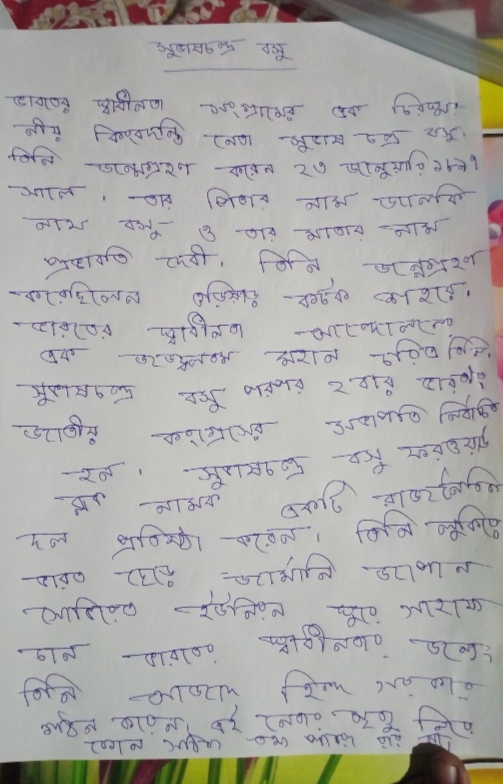 সুভাষচন্দ্র বসু
ভারতের স্বাধীনতা সংগ্রামের এক চিরস্ম-
নীয় কিংবদন্তি নেতা সুভাষ চন্দ্র বসু.
তিনি জন্মেগ্রহণ করেন ২৩ জানুয়ারি ১৮৯৭
সালে. তার পিতার নাম জানকি
নাথ বসু ও তার মাতার নাম
প্রভাবতি দেবী. তিনি জন্মেগ্রহণ
করেছিলেন ওড়িষায় কটক শহরে.
ভারতের স্বাধীনতা আন্দোলনে
এক মহান চরিত্র তিনি.
সুভাষচন্দ্র বসু পরপর ২ বার ভারত
জাতীয় কংগ্রেসের সভাপতি নির্বাচিত
হন. সুভাষচন্দ্র বসু ফরওয়ার্ড
ব্লক নামক একটি রাজনৈতিক
দল প্রতিষ্ঠা করেন. তিনি লুকিয়ে
ভারত ছেড়ে জার্মানি জাপান
সোভিয়েত ইউনিয়ন ঘুরে সাহায্য
চান ভারতের স্বাধীনতার জন্যে.
তিনি আজাদ হিন্দ সরকার
গঠন করেন. এই নেতার মৃত্যু নিয়ে
কোন সঠিক তথ্য পাওয়া যায় নি